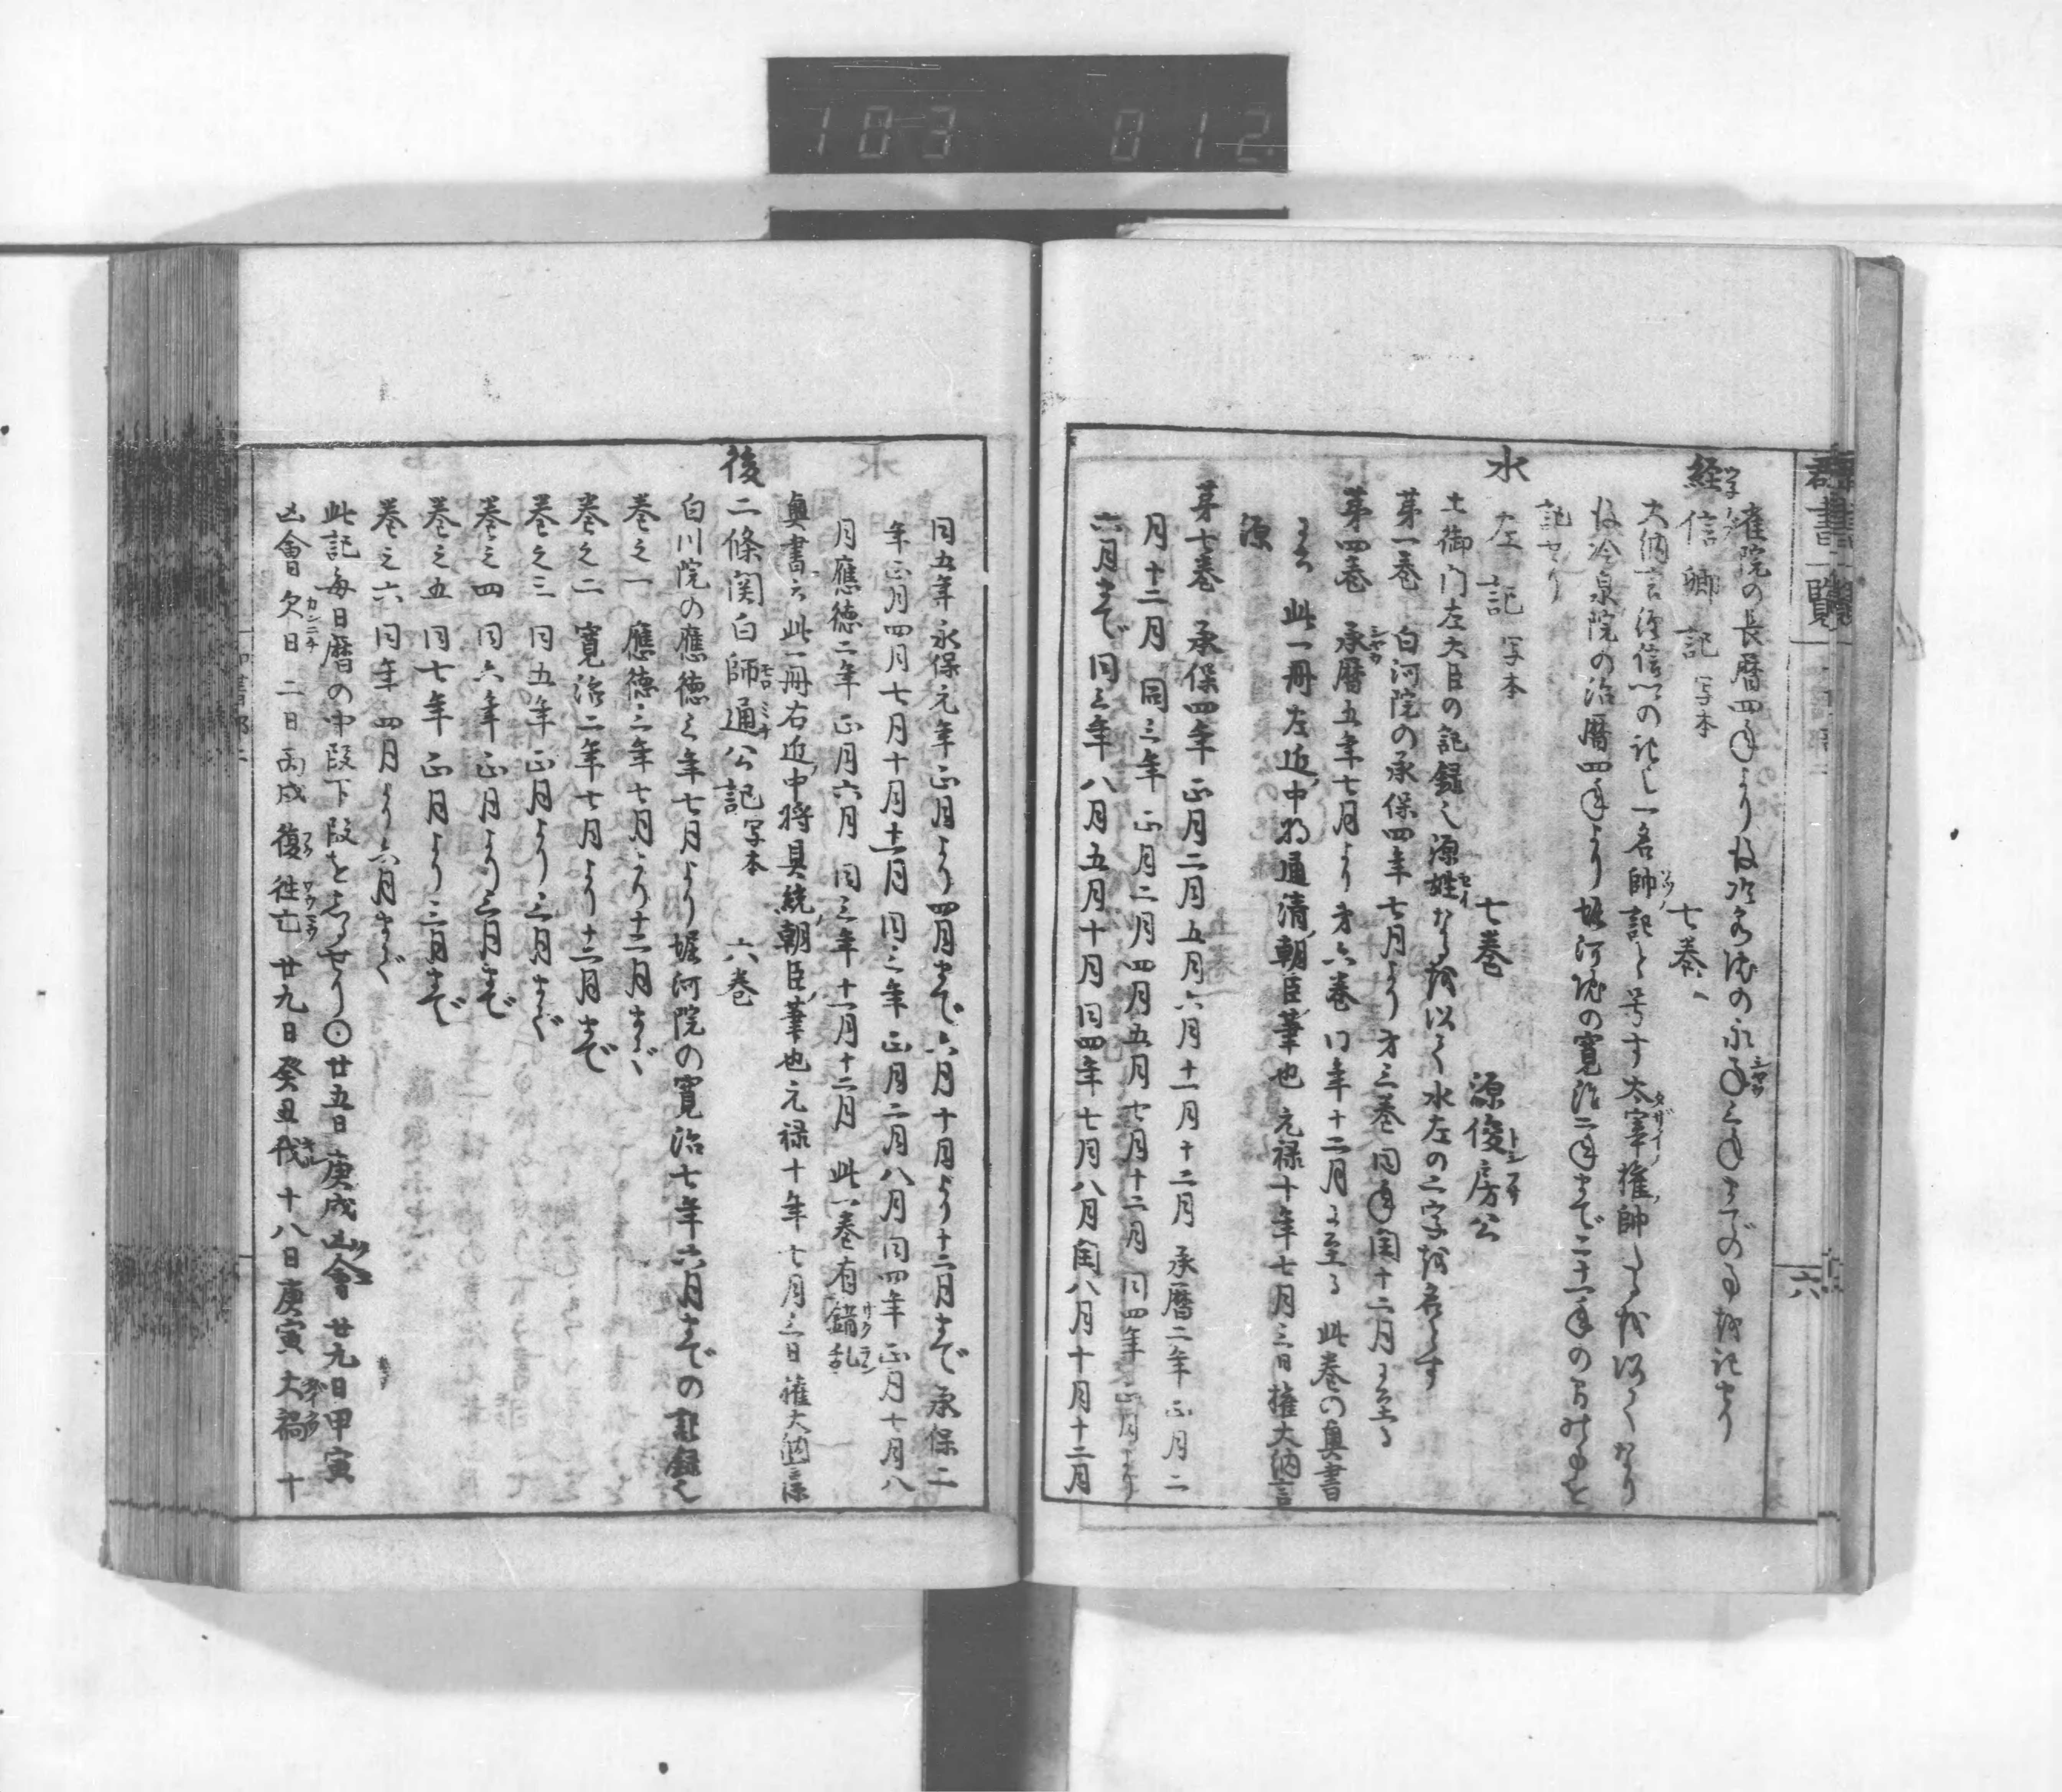 103 012
群書一覧
六
雀院の長暦四年より後冷泉院の永承三年までの事を記せり
経信卿記 写本 七巻
大納言源信の記し一名帥記と号す太宰権帥たるを以てなり
後冷泉院の治暦四年より堀河院の寛治二年まで二十一年の
記せり
水左記 写本 七巻 源俊房公
土御門左大臣の記録也源姓なるを以て水左の二字を名とす
第一巻 白河院の承保四年七月より 才三巻 同年閏十二月に至る
第四巻 承暦五年七月より才六巻 同年十二月に至る 此巻の奥書
に云 此一冊左近中将通清朝臣筆也 元禄十年七月三日 権大納言
源
第七巻 承保四年 正月二月五月六月十一月十二月 承暦二年 正月二
月十二月 同三年 正月二月四月五月七月十二月 同四年 正月より
六月まで 同三年 八月五月十月 同四年 七月八月閏八月十月十二月
同五年 永保元年正月より四月まで六月十月より十二月まで 承保二
年 正月四月七月十月十一月 同三年 正月二月八月 同四年 正月七月八
月 應徳二年 正月六月 同三年 十一月十二月 此一巻有錯乱
奥書云 此一冊右近中将具統朝臣筆也 元禄十年七月三日 権大納言源
後二條関白師通公記 写本 六巻
白川院の應徳三年七月より堀河院の寛治七年六月までの記録也
巻之一 應徳三年七月より十二月まで
巻之二 寛治二年七月より十二月まで
巻之三 同五年正月より三月まで
巻之四 同六年正月より三月まで
巻之五 同七年正月より三月まで
巻之六 同年四月より六月まで
此記毎日暦の中段下段をしるせり〇廿五日 庚戌 凶會 廿九日 甲寅
凶會 欠日 二日 丙戌 復 往亡 廿九日 癸丑 伐 十八日 庚寅 大禍 十